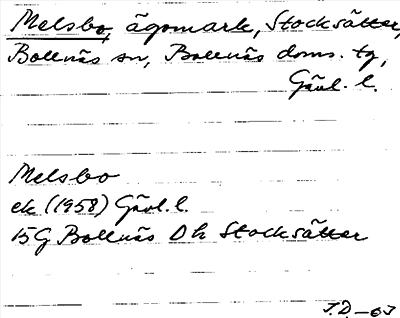 Melsbo, ägomark, Stocksätter,
Bollnäs sn, Bollnäs doms. tg,
Gävl. l.
Melsbo
ek (1958) Gävl. l.
15G Bollnäs Dh Stocksätter
J.D.-63